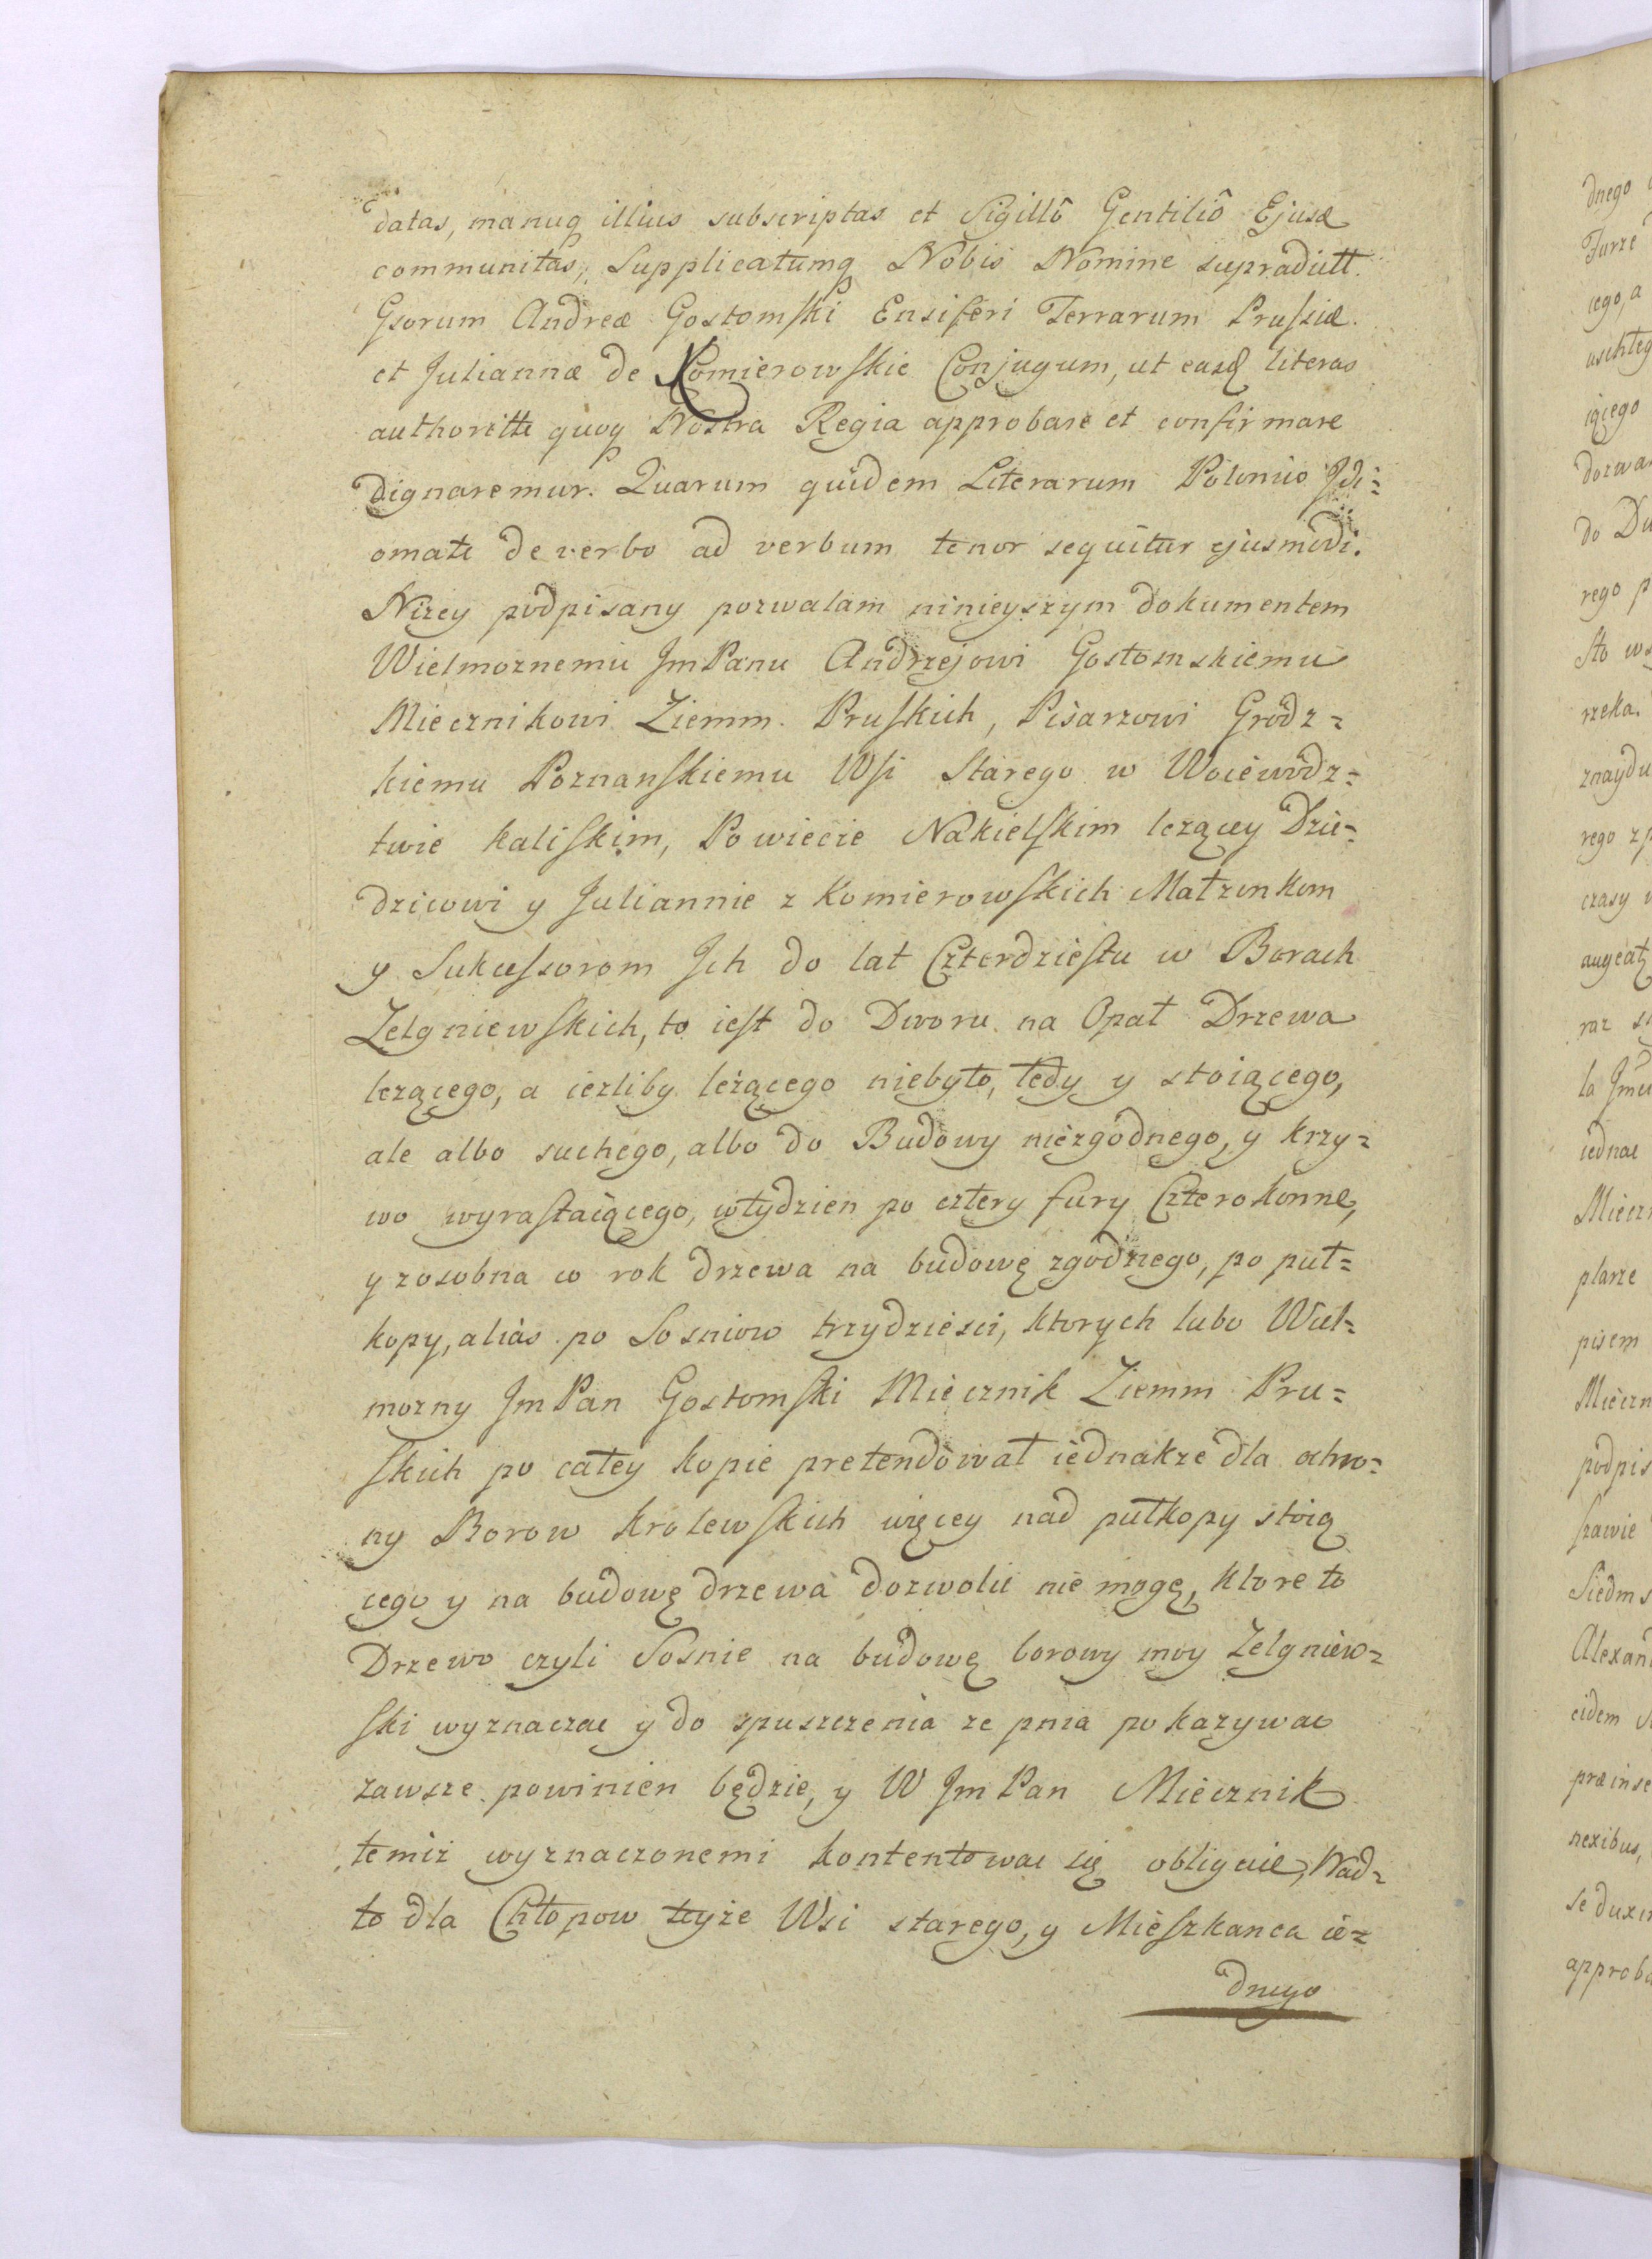 datas, manuq illius subscriptas et Sigillô Gentiliô Ejusd
communitas, Supplicatumq Nobis Nomine supradictt.
Gsorum Andreæ Gostomski Ensiferi Terrarum Prussiæ
et Juliannæ de Komierowskie Conjugum, ut easd literas
authoritte quoq Nostra Regia approbare et confirmare
dignaremur. Quarum quidem Literarum Polonico Jdi=
omate de verbo ad verbum tenor sequitur ejusmodi.
Nizey podpisany pozwalam ninieyszym dokumentem
Wielmoznemu JmPanu Andrzejowi Gostomskiemu
Miecznikowi Ziemm. Pruskich, Pisarzowi Grodz=
kiemu Poznanskiemu Wsi Starego w Woiewodz=
twie Kaliskim, Powiecie Nakielskim lezącey Dzie=
dzicowi y Juliannie z Komierowskich Małzonkom
y Sukcessorom Jch do lat Czterdziestu w Borach
Zelgniewskich, to iest do Dworu na Opał Drzewa
lezącego, a iezliby leżącego niebyło, tedy y stoiącego,
ale albo suchego, albo do Budowy niezgodnego, y krzy=
wo wyrastaiącego, wtydzien po cztery fury Czterokonne,
y zosobna co rok drzewa na budowę zgodnego, po puł=
kopy, alias po Sosniow trzydziesci, ktorych lubo Wiel=
mozny JmPan Gostomski Miecznik Ziemm Pru=
skich po całey kopie pretendował iednakze dla ochro=
ny Borow Krolewskich więcey nad pułkopy stoią
cego y na budowę drzewa dozwolić nie mogę, ktore to
Drzewo czyli Sosnie na budowę borowy moy Zelgniew=
ski wyznaczac y do spuszczenia ze pnia pokazywac
zawsze powinien będzie, y W JmPan Miecznik
temiż wyznaczonemi kontentowac się obliguie, Nad=
to dla Chłopow teyże Wsi starego, y Mieszkanca ie=
dnego
dnego
Turze
cego, a
uschłeg
iącego
dozwa
do Du
rego p
sto ws
rzeka.
znaydu
rego zp
czasy
augeat
raz
la Jmc
iednac
Mieczn
plarze
pisem
Mieczn
podpis
szawie
Siedms
Alexan
eidem
præinse
nexibus,
se duxi
approba